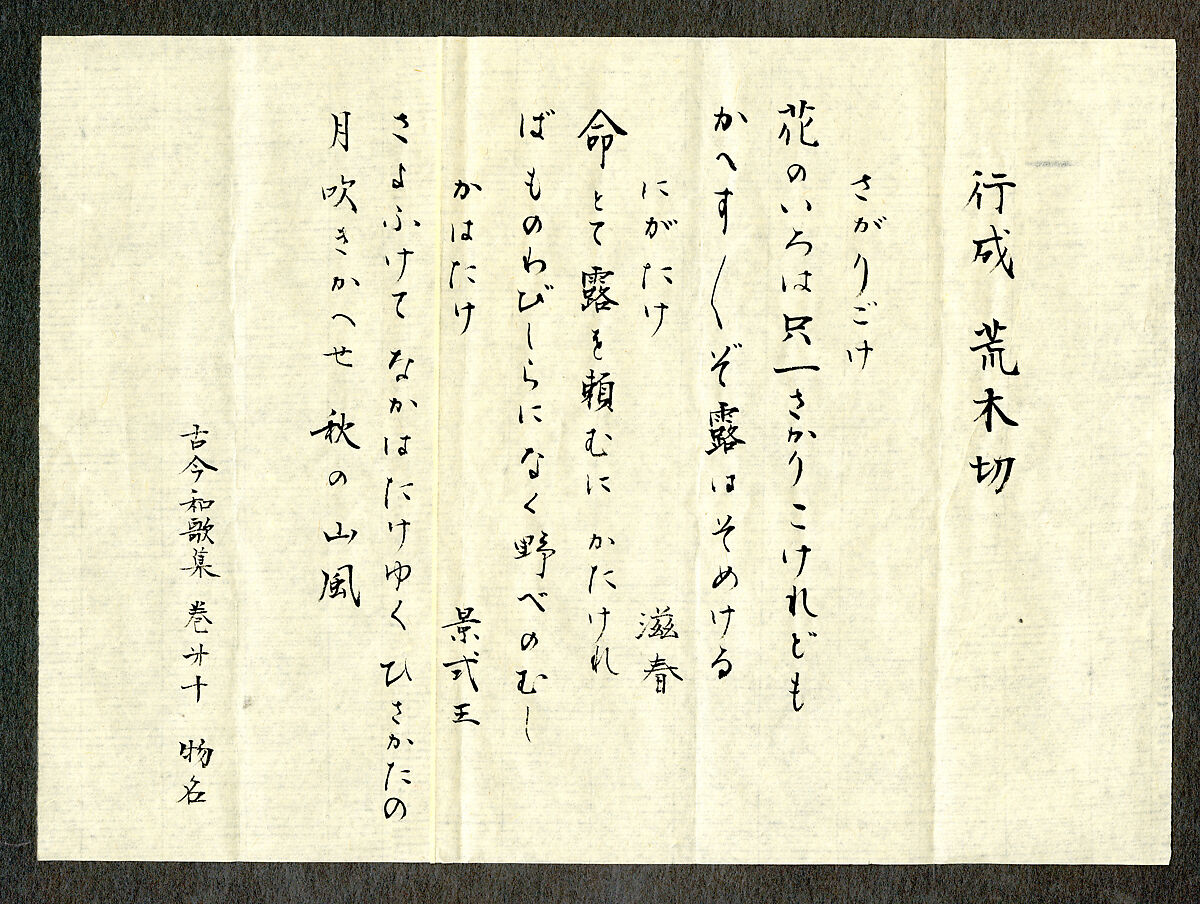 行成 荒木切
さがりごけ
花のいろは只一さかりこけれども
かへす〱ぞ露はそめける
にがたけ 滋春
命とて露を頼むに かたけれ
ばものわびしらになく野べのむし
かはたけ 景式王
さよふけてなかはたけゆくひさかたの
月吹きかへせ 秋の山風
古今和歌集 巻㐧十 物名